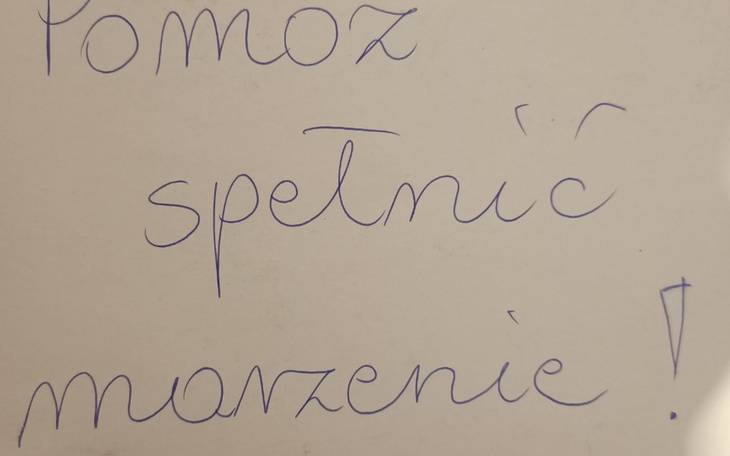 Pomoz
spełnić
marzenie!